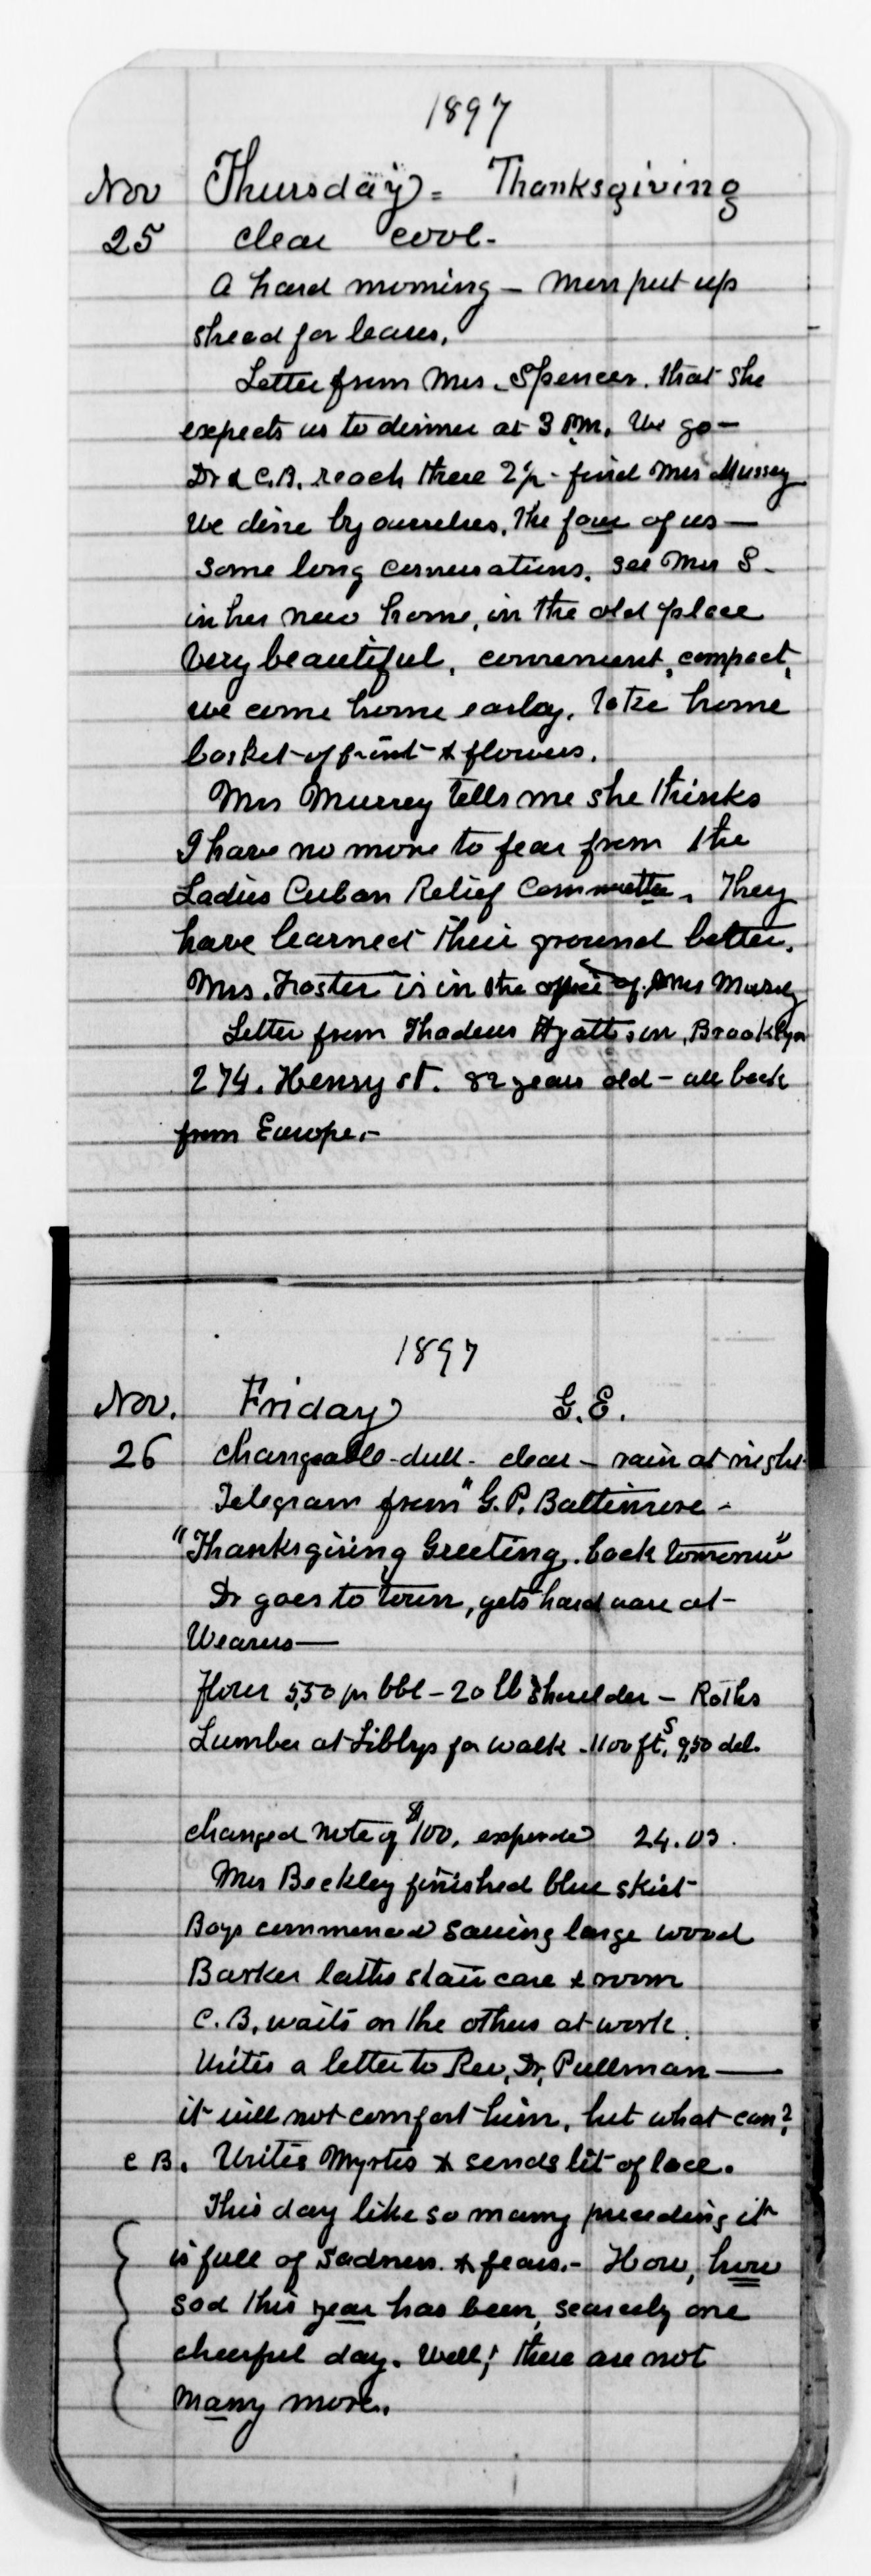 1897
Nov Thursday = Thanksgiving
25 clear cool -
A hard morning - Men put up
shead for leaves.
Letter from Mrs. Spencer. that she
expects us to dinner at 3 PM. We go -
Dr & C.B. reach there 2½ - find Mrs Mussey
We dine by ourselves, the four of us -
some long conversations. see Mrs S -
in her new home, in the old place
Very beautiful, convenient, compact,
we come home early. take home
basket of fruit & flowers.
Mrs Mussey tells me she thinks
I have no more to fear from the
Ladies Cuban Relief Committee. They
have learned their ground better.
Mrs. Foster is in the office of Mrs Mussey
Letter from Thadeus Hyatts son, Brooklyn
274. Henry st. 82 years old - all back
from Europe. -
1897
Nov. Friday G.E.
26 changeable - dull - clear - rain at night
Telegram from "G.P. Baltimore -
"Thanksgiving Greeting. back tomorrow"
Dr goes to town, gets hard ware at -
Weavers -
flour 5,50 pr bbl - 20 lb shoulder - Roths
Lumber at Libbys for walk - 1100 fts, 9,50 del.
changed note of $100, expended 24.03.
Mrs Beckley finished blue skirt -
Boys commenced sawing large wood
Barker laths stair case & room
C.B. waits on the others at work.
Writes a letter to Rev, Dr, Pullman -
it will not comfort him, but what can?
C B. Writes Myrtis & sends bit of lace.
This day like so many preceding it
is full of sadness. & fears. - How, how
sad this year has been, scarcely one
cheerful day. Well! there are not
many more.